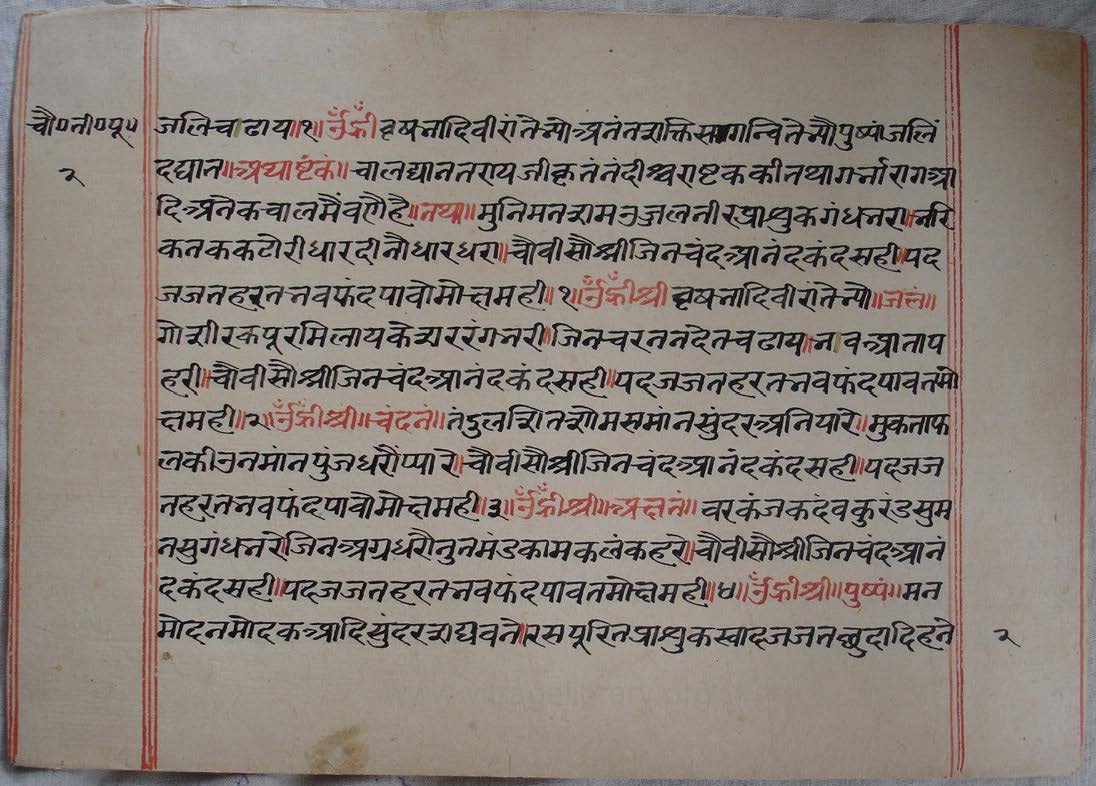 चौ०ती०पू०
२
जलि चढाय॥१॥ॐह्रीँ वृषभादिवीरांतेभ्यो अनंतशक्तिसमन्वितेभ्यो पुष्पांजलिं
दद्यान॥अथाष्टंकं॥चालद्यानतरायजीकृतनंदीश्वराष्टककीतथागर्भारागआ
दिअनेकचालमैंवणैहै॥तथा॥मुनिमनशमउजलनीरप्राशुकगंधभरा॥भरि
कनककटोरीधारदीनौधारधरा॥चौवीसौश्रीजिनचंदआनंदकंदसही॥पद
जजतहरतभवफंदपावोमोक्षमही॥१॥ॐह्रीँश्री वृषभादिवीरांतेभ्यो॥जलं॥
गोशीरकपूरमिलायकेशररंगभरी॥जिनचरननदेतचढाय॥भवआताप
हरी॥चौवीसौश्रीजिनचंदआनंदकंदसही॥पदजजतहरतभवफंदपावतमो
क्षमही॥२॥ॐह्रीँश्री॥चंदनं॥तंदुलशितशोमसमांनसुंदरअनियारे॥मुकताफ
लकीउनमांनपुंजधरौंप्पारे॥चौवीसौश्रीजिनचंदआनंदकंदसही॥पदजज
तहरतभवफंदपावोमोक्षमही॥३॥ॐह्रीँश्री॥अक्षतं॥वरकंजकदंवकुरंडसुम
नसुगंधभरे॥जिनअग्रधरौनुनमंडकामकलंकहरे॥चौवीसौश्रीजिनचंदआनं
दकंदसही॥पदजजतहरतभवफंदपावतमोक्षमही॥४॥ॐह्रीँश्री॥पुष्पं॥मन
मोदनमोदकआदिसुंदरशद्यवने॥रसपूरितप्राशुकस्वादजजतछुदादिहने
२